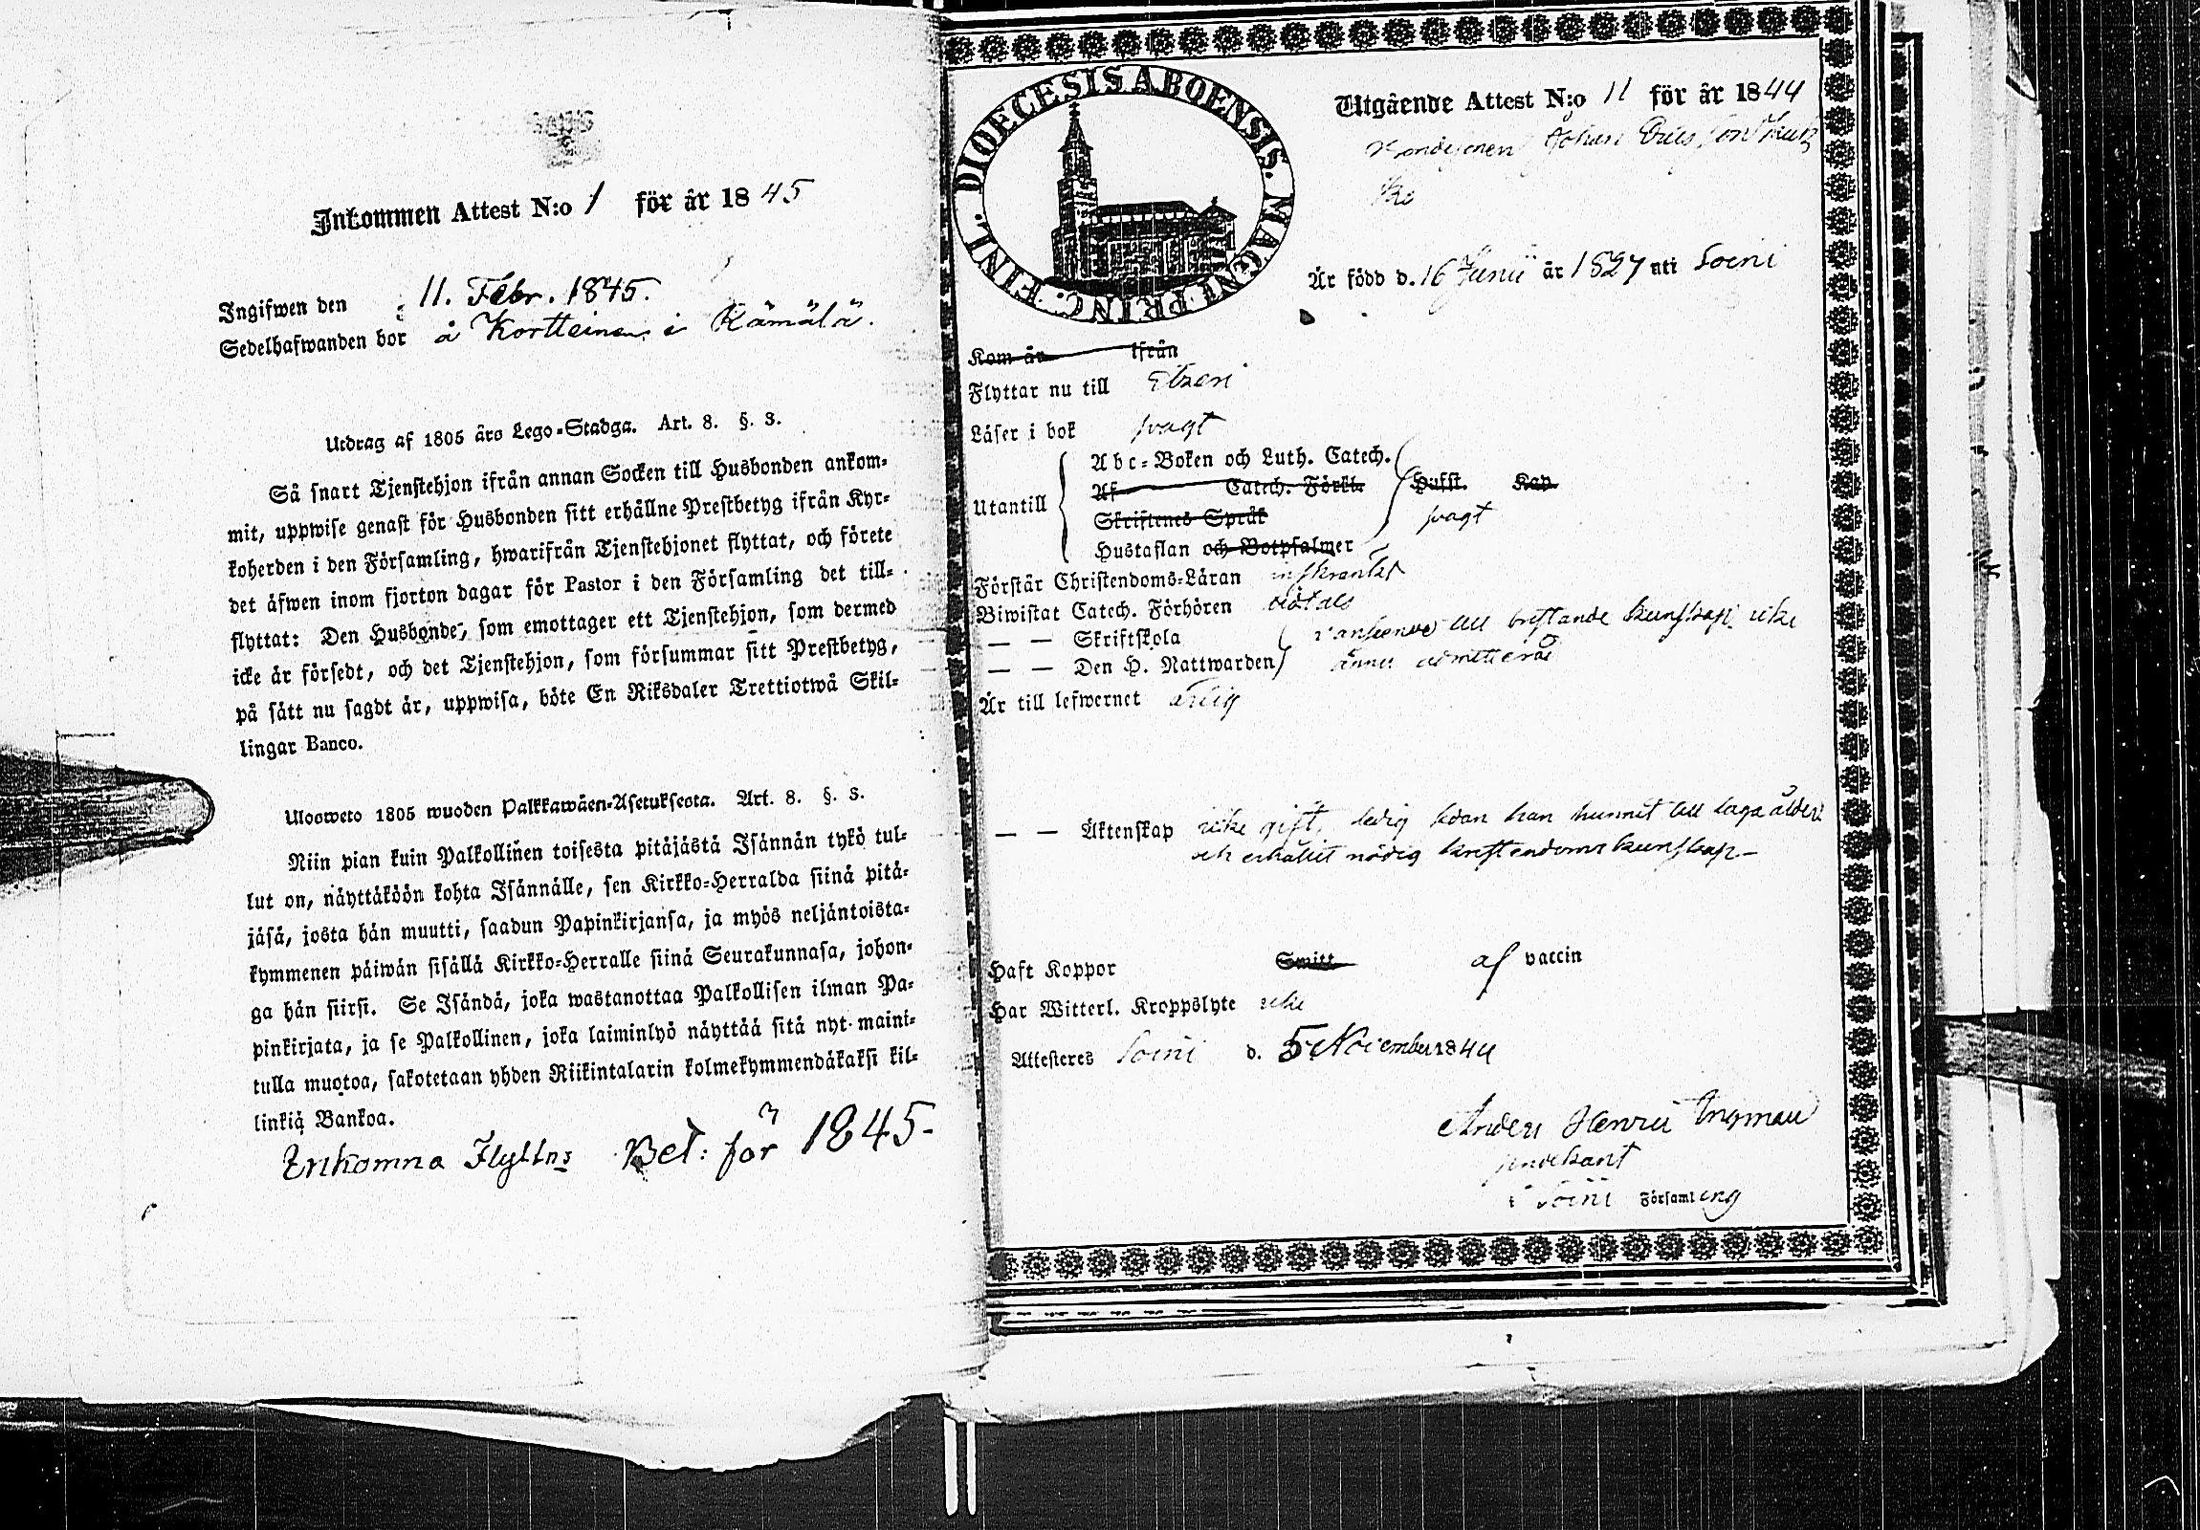 Inkommen Attest N:o 1 för år 1845
Ingifwen den 11. Febr. 1845.
Sedelhafwanden bor å Kortteinen i Kämälä.
Utdrag af 1805 års Lego-Stadga. Art. 8. §. 3.
Så snart Tjenstehjon ifrån annan Socken till Husbonden ankom-
mit, uppwise genast för Husbonden sitt erhållne Prestbetyg ifrån Kyr-
koherden i den Församling, hwarifrån Tjenstehjonet flyttat, och förete
det äfwen inom fjorton dagar för Pastor i den Församling det till-
flyttat: Den Husbonde, som emottager ett Tjenstehjon, som dermed
icke är försedt, och det Tjenstehjon, som försummar sitt Prestbetyg,
på sätt nu sagdt är, uppwisa, böte En Riksdaler Trettiotwå Skil-
lingar Banco.
Ulosweto 1805 wuoden Palkkawäen-Asetuksesta. Art. 8. §. 3.
Niin pian kuin Palkollinen toisesta pitäjästä Isännän tykö tul-
lut on, näyttäköön kohta Isännälle, sen Kirkko-Herralda siinä pitä-
jäsä, josta hän muutti, saadun Papinkirjansa, ja myös neljäntoista-
kymmenen päiwän sisällä Kirkko-Herralle siinä Seurakunnasa, johon-
ga hän siirsi. Se Isändä, joka wastanottaa Palkollisen ilman Pa-
pinkirjata, ja se Palkollinen, joka laiminlyö näyttää sitä nyt maini-
tulla muotoa, sakotetaan yhden Riikintalarin kolmekymmendäkaksi kil-
linkiä Bankoa.
Inkomna Flyttns Bet: för 1845.
DIOECESIS ABOENSIS. MAGNI PRINC. FINL.
Utgående Attest N:o 11 för år 1844
Johan
Är född d. 16 Junii år 1827 uti Soini
Kom år ifrån
Flyttar nu till Etseri
Läser i bok svagt
Abc-Boken och Luth. Catech.
Utantill Af Catech. Förkl. Hufst. Kap.
Skriftenes Språk svagt
Hustaflan och Botpsalmer
Förstår Christendoms-Läran inskränkt
Biwistat Catech. Förhören
— — Skriftskola till bristande kunskap icke
— — Den H. Nattwarden ännu admitterad
Är till lefwernet ärlig
— — Äktenskap icke gift, ledig sedan han hunnit till laga ålder
och erhållit nödig kristendoms kunskap—
Haft Koppor Smitt af vaccin
Har Witterl. Kroppslyte icke
Attesteres Soini d. 5 November 1844
Anders Henric Ingman
predikant
i Soini Församling